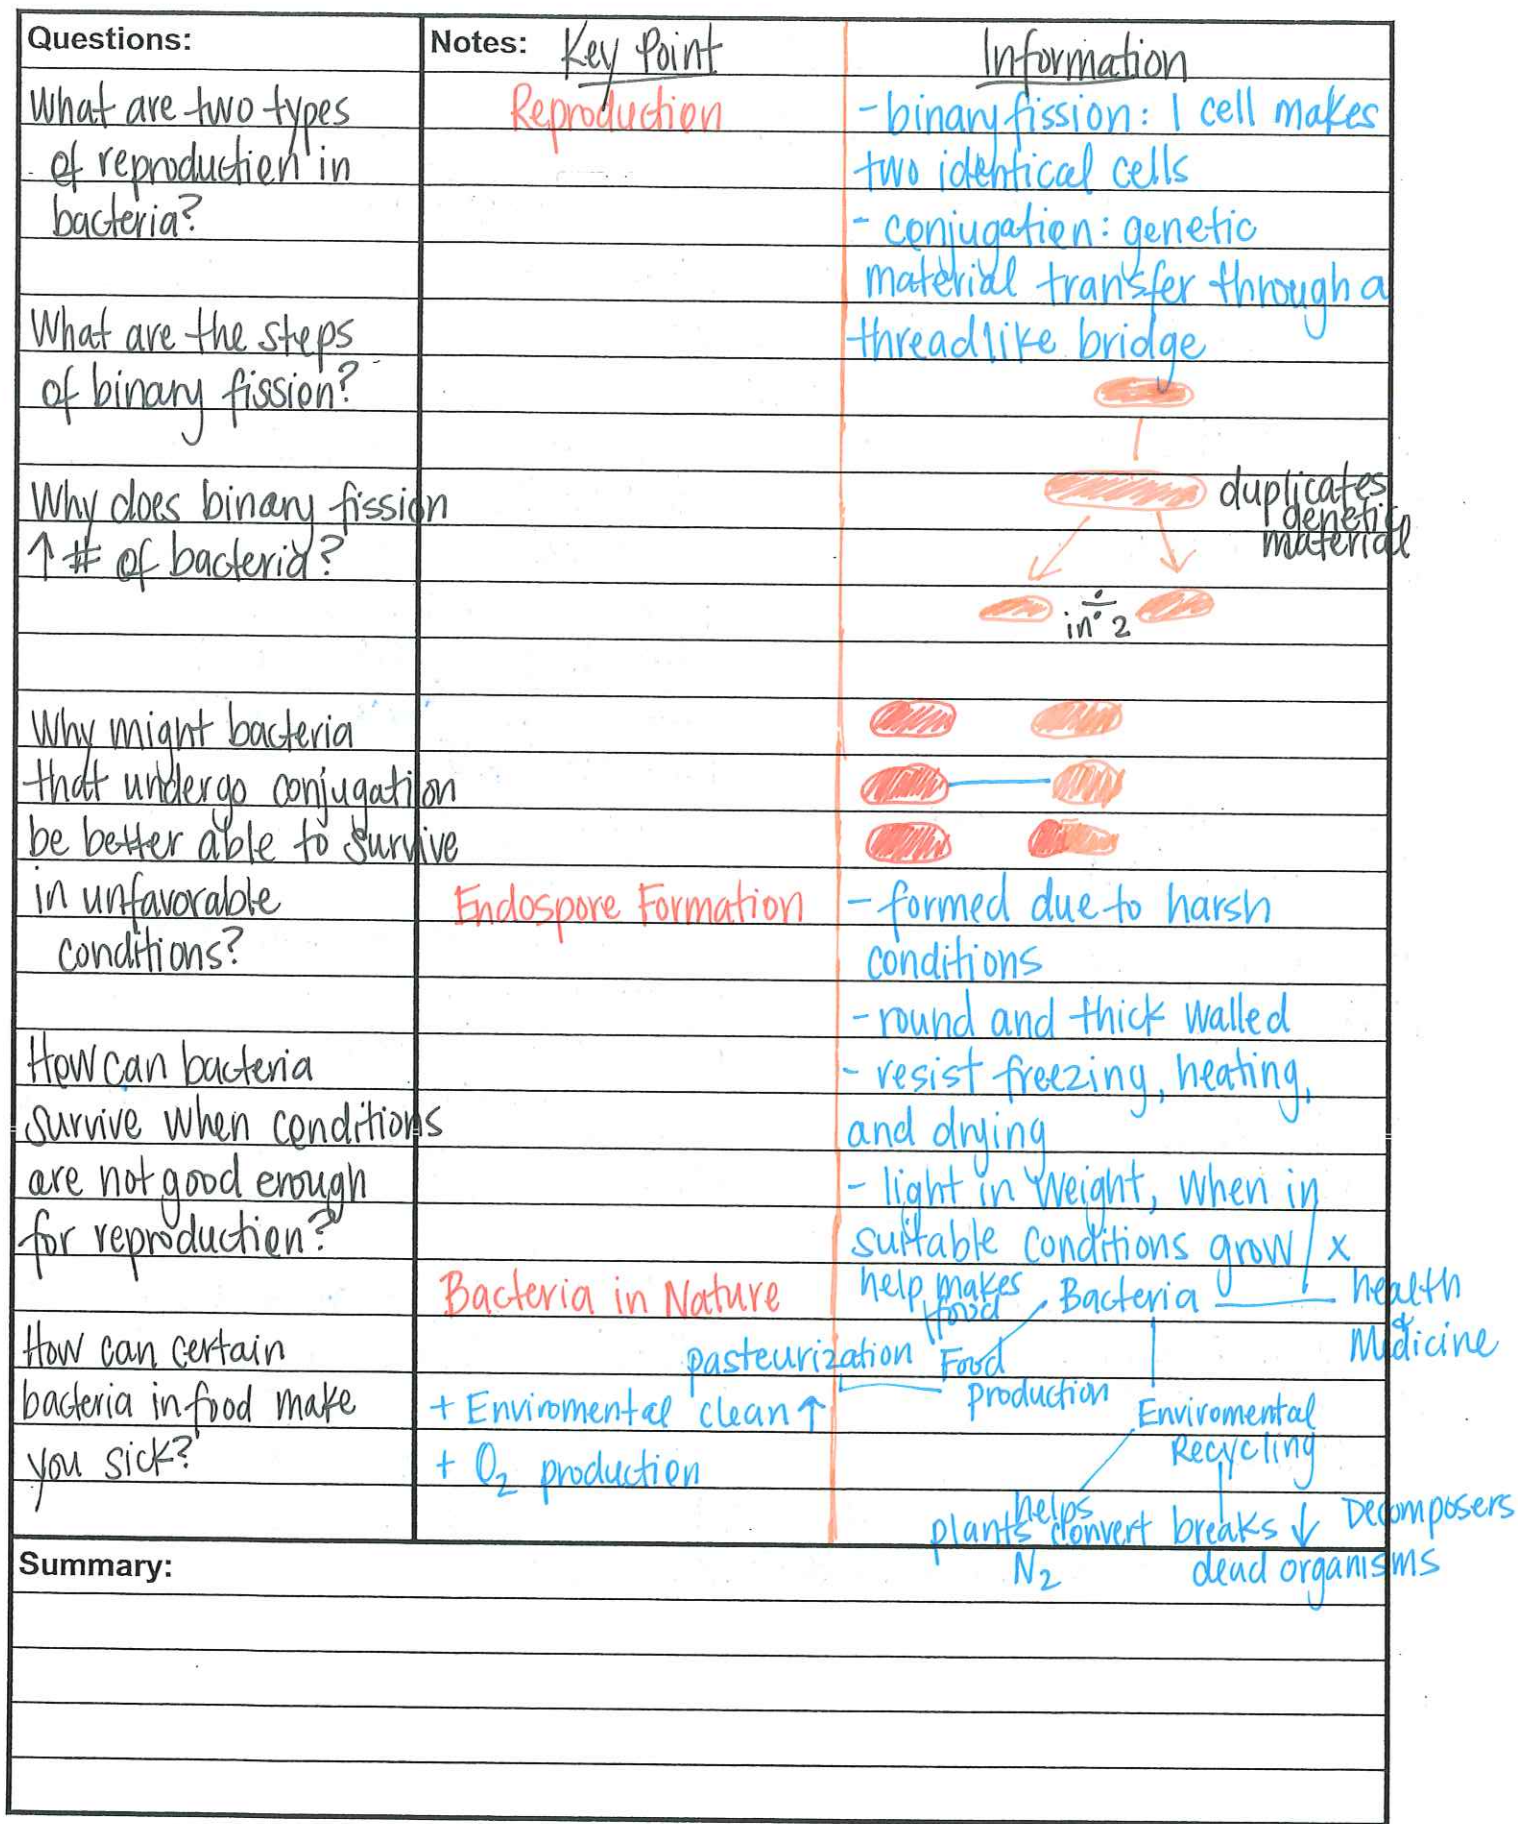 Questions:
What are two types
of reproduction in
bacteria?
What are the steps
of binary fission?
Why does binary fission
↑ # of bacteria?
Why might bacteria
that undergo conjugation
be better able to survive
in unfavorable
conditions?
How can bacteria
survive when conditions
are not good enough
for reproduction?
How can certain
bacteria in food make
you sick?
Notes: Key Point
Information
Reproduction
- binary fission: 1 cell makes
two identical cells
- conjugation: genetic
material transfer through a
threadlike bridge
duplicates
genetic
material
÷
in 2
Endospore Formation
- formed due to harsh
conditions
- round and thick walled
- resist freezing, heating,
and drying
- light in weight, when in
suitable conditions grow / x
Bacteria in Nature
help makes
food
Bacteria
health
&
Medicine
pasteurization
Food
production
+ Enviromental clean ↑
+ O2 production
Enviromental
Recycling
helps
plants convert
N2
breaks ↓
dead organisms
Decomposers
Summary: